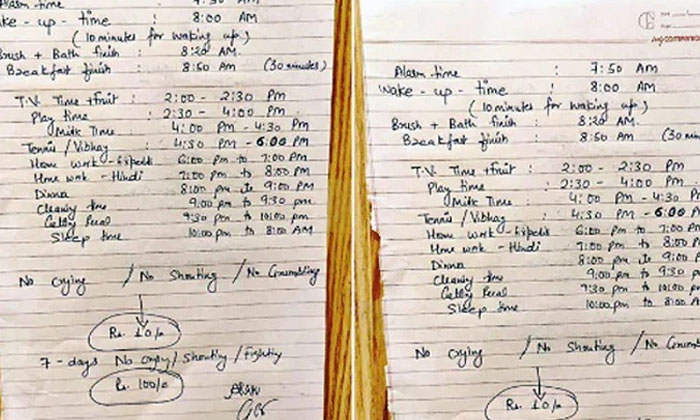 Alarm time
Wake - up - time : 8:00 AM
(10 minutes for waking up)
Brush + Bath finish : 8:20 AM.
Breakfast finish : 8:50 AM (30 minutes)
T.V. Time + fruit : 2:00 - 2:30 PM
Play time : 2:30 - 4:00 PM.
Milk Time : 4:00 PM - 4:30 PM
Tennis / Vibhay : 4:30 PM - 6:00 PM
Home work - : 6:00 PM to 7:00 PM
Home work - Hindi : 7:00 PM to 8:00 PM
Dinner : 8:00 pm to 9:00 PM
Cleaning time 9:00 pm to 9:30 pm
9:30 pm to 10:00 pm
Sleep time 10:00 pm to 8:00 AM
No Crying / No Shouting / No Grumbling
Rs. 10/-
7 - days No crying / Shouting / Fighting
Rs. 100/-
Alarm time : 7:50 AM
Wake - up - time : 8:00 AM
(10 minutes for waking up)
Brush + Bath finish : 8:20 AM.
Breakfast finish : 8:50 AM (30 min
T.V. Time + fruit : 2:00 - 2:30 PM
Play time : 2:30 - 4:00 PM.
Milk Time : 4:00 PM - 4:30 PM
Tennis / Vibhay : 4:30 PM - 6:00
Home work - : 6:00 PM to 7:00 PM
Home work - Hindi : 7:00 PM to 8:00
Dinner : 8:00 pm to 9:00 P
Cleaning time 9:00 pm to 9:30
9:30 pm to 10:00 p
Sleep time 10:00 pm to 8:00 A
No Crying / No Shouting / No Grumb
Rs. 10/-